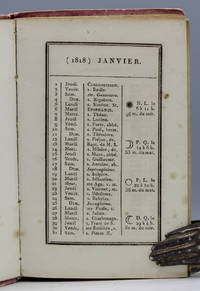 (1818) JANVIER.
1 Jeudi CIRCONCISION.
2 Vendr. s. Basile.
3 Sam. ste. Genevieve.
4 Dim. s. Rigobert.
5 Lundi s. Siméon St. N. L. le
6 Mardi EPIPHANIE.
7 Merc. s. Théau. m. du soir.
8 Jeudi s. Lucien.
9 Vendr. s. Furcy, abbé.
10 Sam. s. Paul, herm.
11 Dim. s. Théodore.
12 Lundi
13 Mardi Bapt. de N. S. P. Q. le
14 Merc. s. Hilaire,
15 Jeudi s. Maur, abbé. m. du mat.
16 Vendr. s. Guillaume.
17 Sam. s. Antoine, ab.
18 Dim. Septuagésime.
19 Lundi s. Sulpice.
20 Mardi s. Sébastien. P. L. le
21 Merc. ste. Ag. v. m.
22 Jeudi s. Vincent, m. m. du mat.
23 Vendr. s. Ildefonse.
24 Sam. s. Babylas.
25 Dim. Sexagésime.
26 Lundi ste. Paule, v.
27 Mardi s. Julien.
28 Merc. s. Charlemagn. D. Q. le
29 Jeudi s. Franc. de S.
30 Vendr. ste. Bathilde, m. du soir.
31 Sam. s. Pierre N.